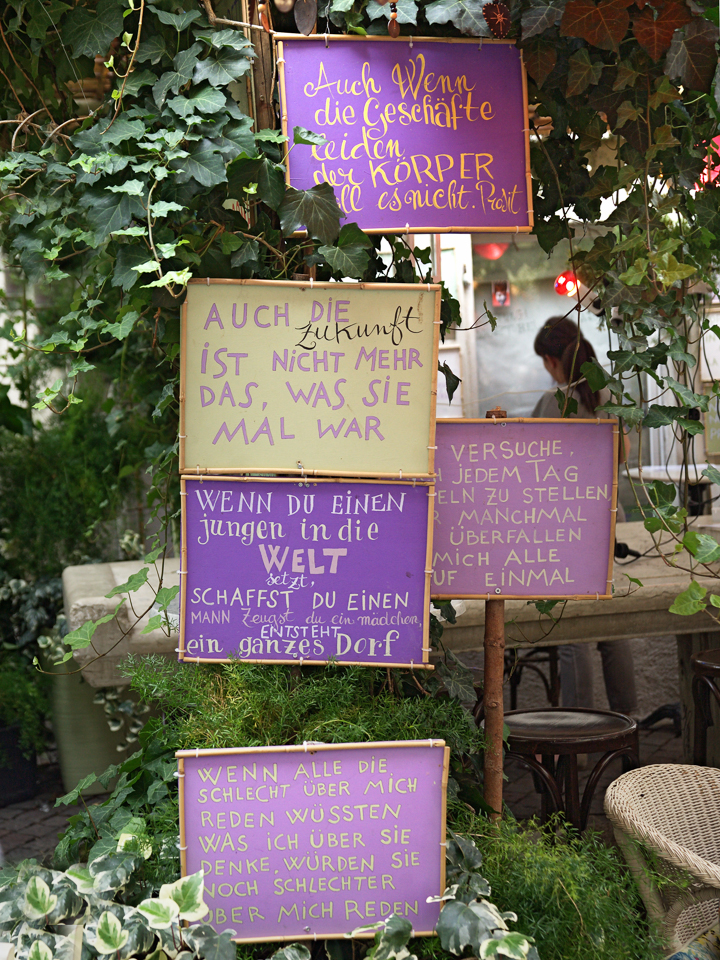 Auch Wenn
die Geschäfte
leiden
der KÖRPER
es nicht. Prosit
AUCH DIE
Zukunft
IST NICHT MEHR
DAS, WAS SIE
MAL WAR
VERSUCHE,
JEDEM TAG
ZU STELLEN,
MANCHMAL
ÜBERFALLEN
MICH ALLE
AUF EINMAL
WENN DU EINEN
jungen in die
WELT
setzt,
SCHAFFST DU EINEN
MANN Zeugst du ein mädchen,
ENTSTEHT
ein ganzes Dorf
WENN ALLE DIE
SCHLECHT ÜBER MICH
REDEN WÜSSTEN
WAS ICH ÜBER SIE
DENKE, WÜRDEN SIE
NOCH SCHLECHTER
ÜBER MICH REDEN